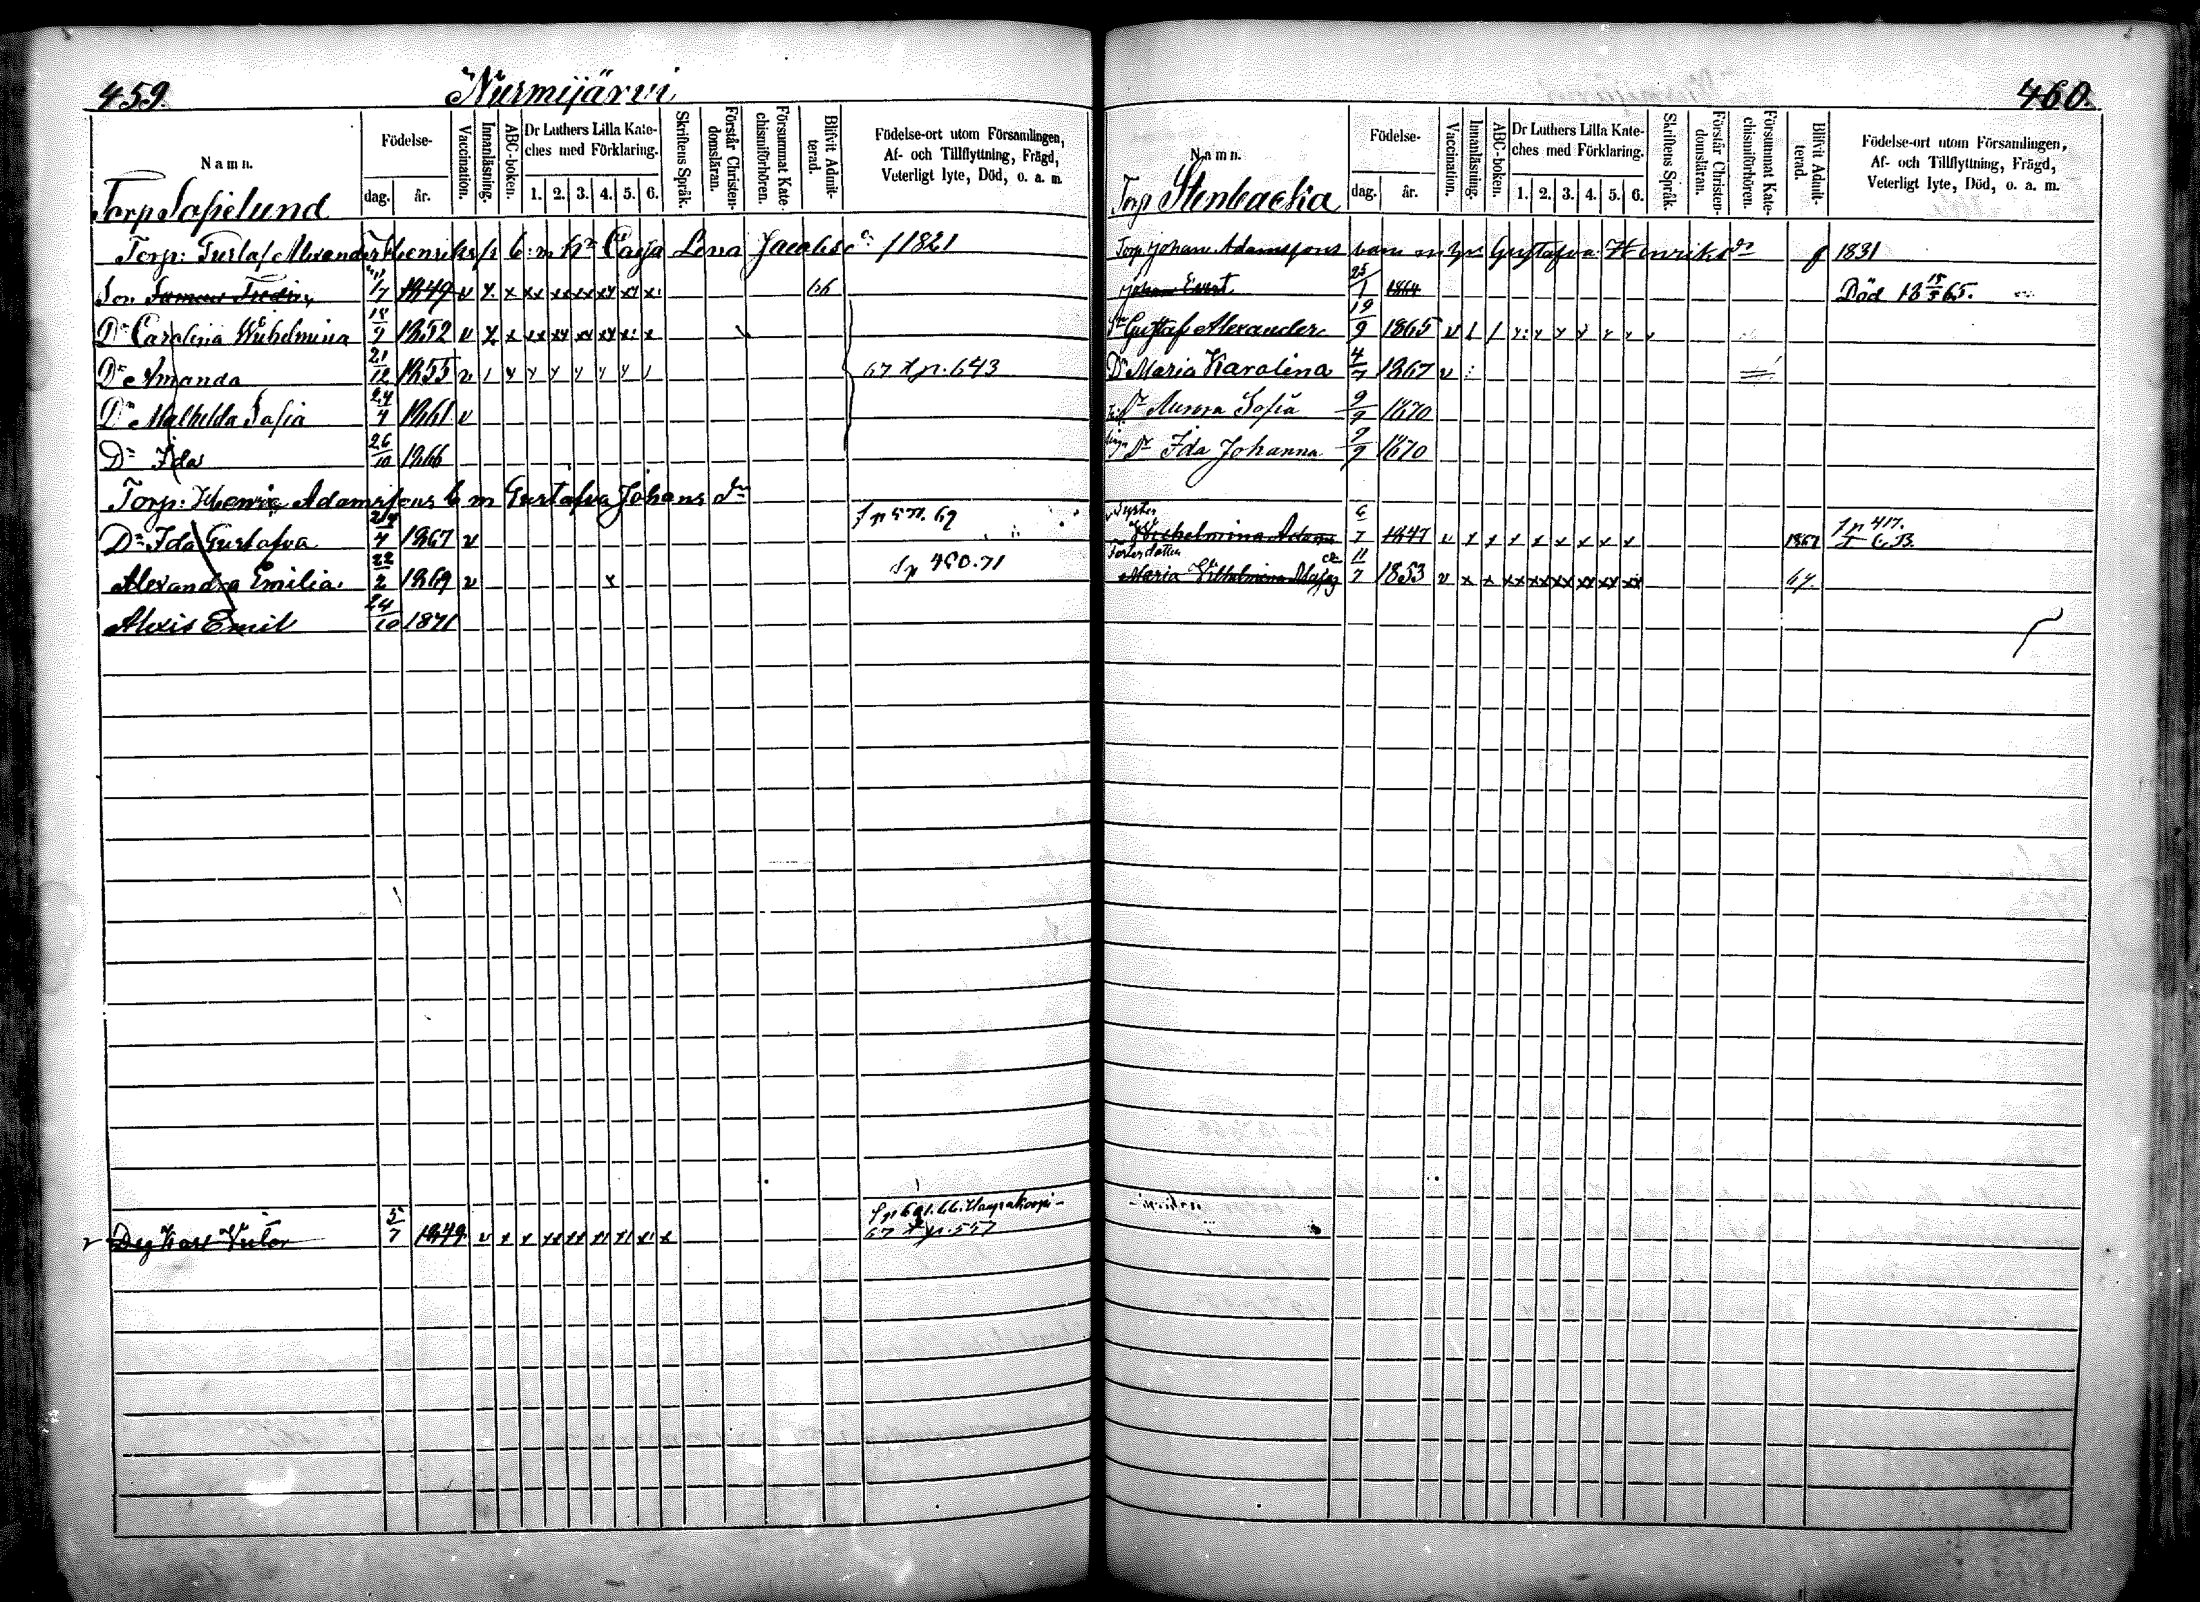 459.
Nurmijärvi
Namn.
Födelse-
dag.
år.
Vaccination.
Innanläsning.
ABC-boken.
Dr Luthers Lilla Kate-
ches med Förklaring.
1. 2. 3. 4. 5. 6.
Skriftens Språk.
Förstår Christen-
domsläran.
Försummat Kate-
chismiförhören.
Blifvit Admit-
terad.
Födelse-ort utom Församlingen,
Af- och Tillflyttning, Frägd,
Veterligt lyte, Död, o. a. m.
Torp Sofielund
Torp: Gustaf Alexander Henriks Caisa Lena Jacobs f 1821
Son 7 1849 v x xx xx xx xx x 66
Dr Carolina Wilhelmina 18/9 1852 v x x xx xx xx xx x: x
Dr Amanda 21/12 1855 v 67 Xp. 643
Dr Mathilda Sofia 24/4 1861 v
Dr Ida 26/10 1866
Torp: Henric Adamssons b m Gustafva Johans dr
Dr Ida Gustafva 24/4 1867 v Sp 571. 69
Alexandra Emilia 22/2 1869 v x Sp 480.71
Alexis Emil 24/10 1871
Karl Victor 5/7 1849 v x x xx xx xx xx x: x
67 Xp. 557
460.
Namn.
Födelse-
dag.
år.
Vaccination.
Innanläsning.
ABC-boken.
Dr Luthers Lilla Kate-
ches med Förklaring.
1. 2. 3. 4. 5. 6.
Skriftens Språk.
Förstår Christen-
domsläran.
Försummat Kate-
chismiförhören.
Blifvit Admit-
terad.
Födelse-ort utom Församlingen,
Af- och Tillflyttning, Frägd,
Veterligt lyte, Död, o. a. m.
Torp Stenbacka
Torp. Johan Adamssons barn m Gustafva Henriks dr f 1831
Johan Evert 25/1 1864 Död 18 15/5 65.
Gustaf Alexander 19/9 1865 v
Dr Maria Karolina 4/7 1867 v
Dr Aurora Sofia 9/9 1870
Dr Ida Johanna 9/9 1870
Syster
Wilhelmina Adams 6/7 1847 v x x x x x x x x 1867 Sp 417.
Fosterdotter
Maria Vilhelmina 11/7 1853 v x x xx xx xx xx xx xx 67.